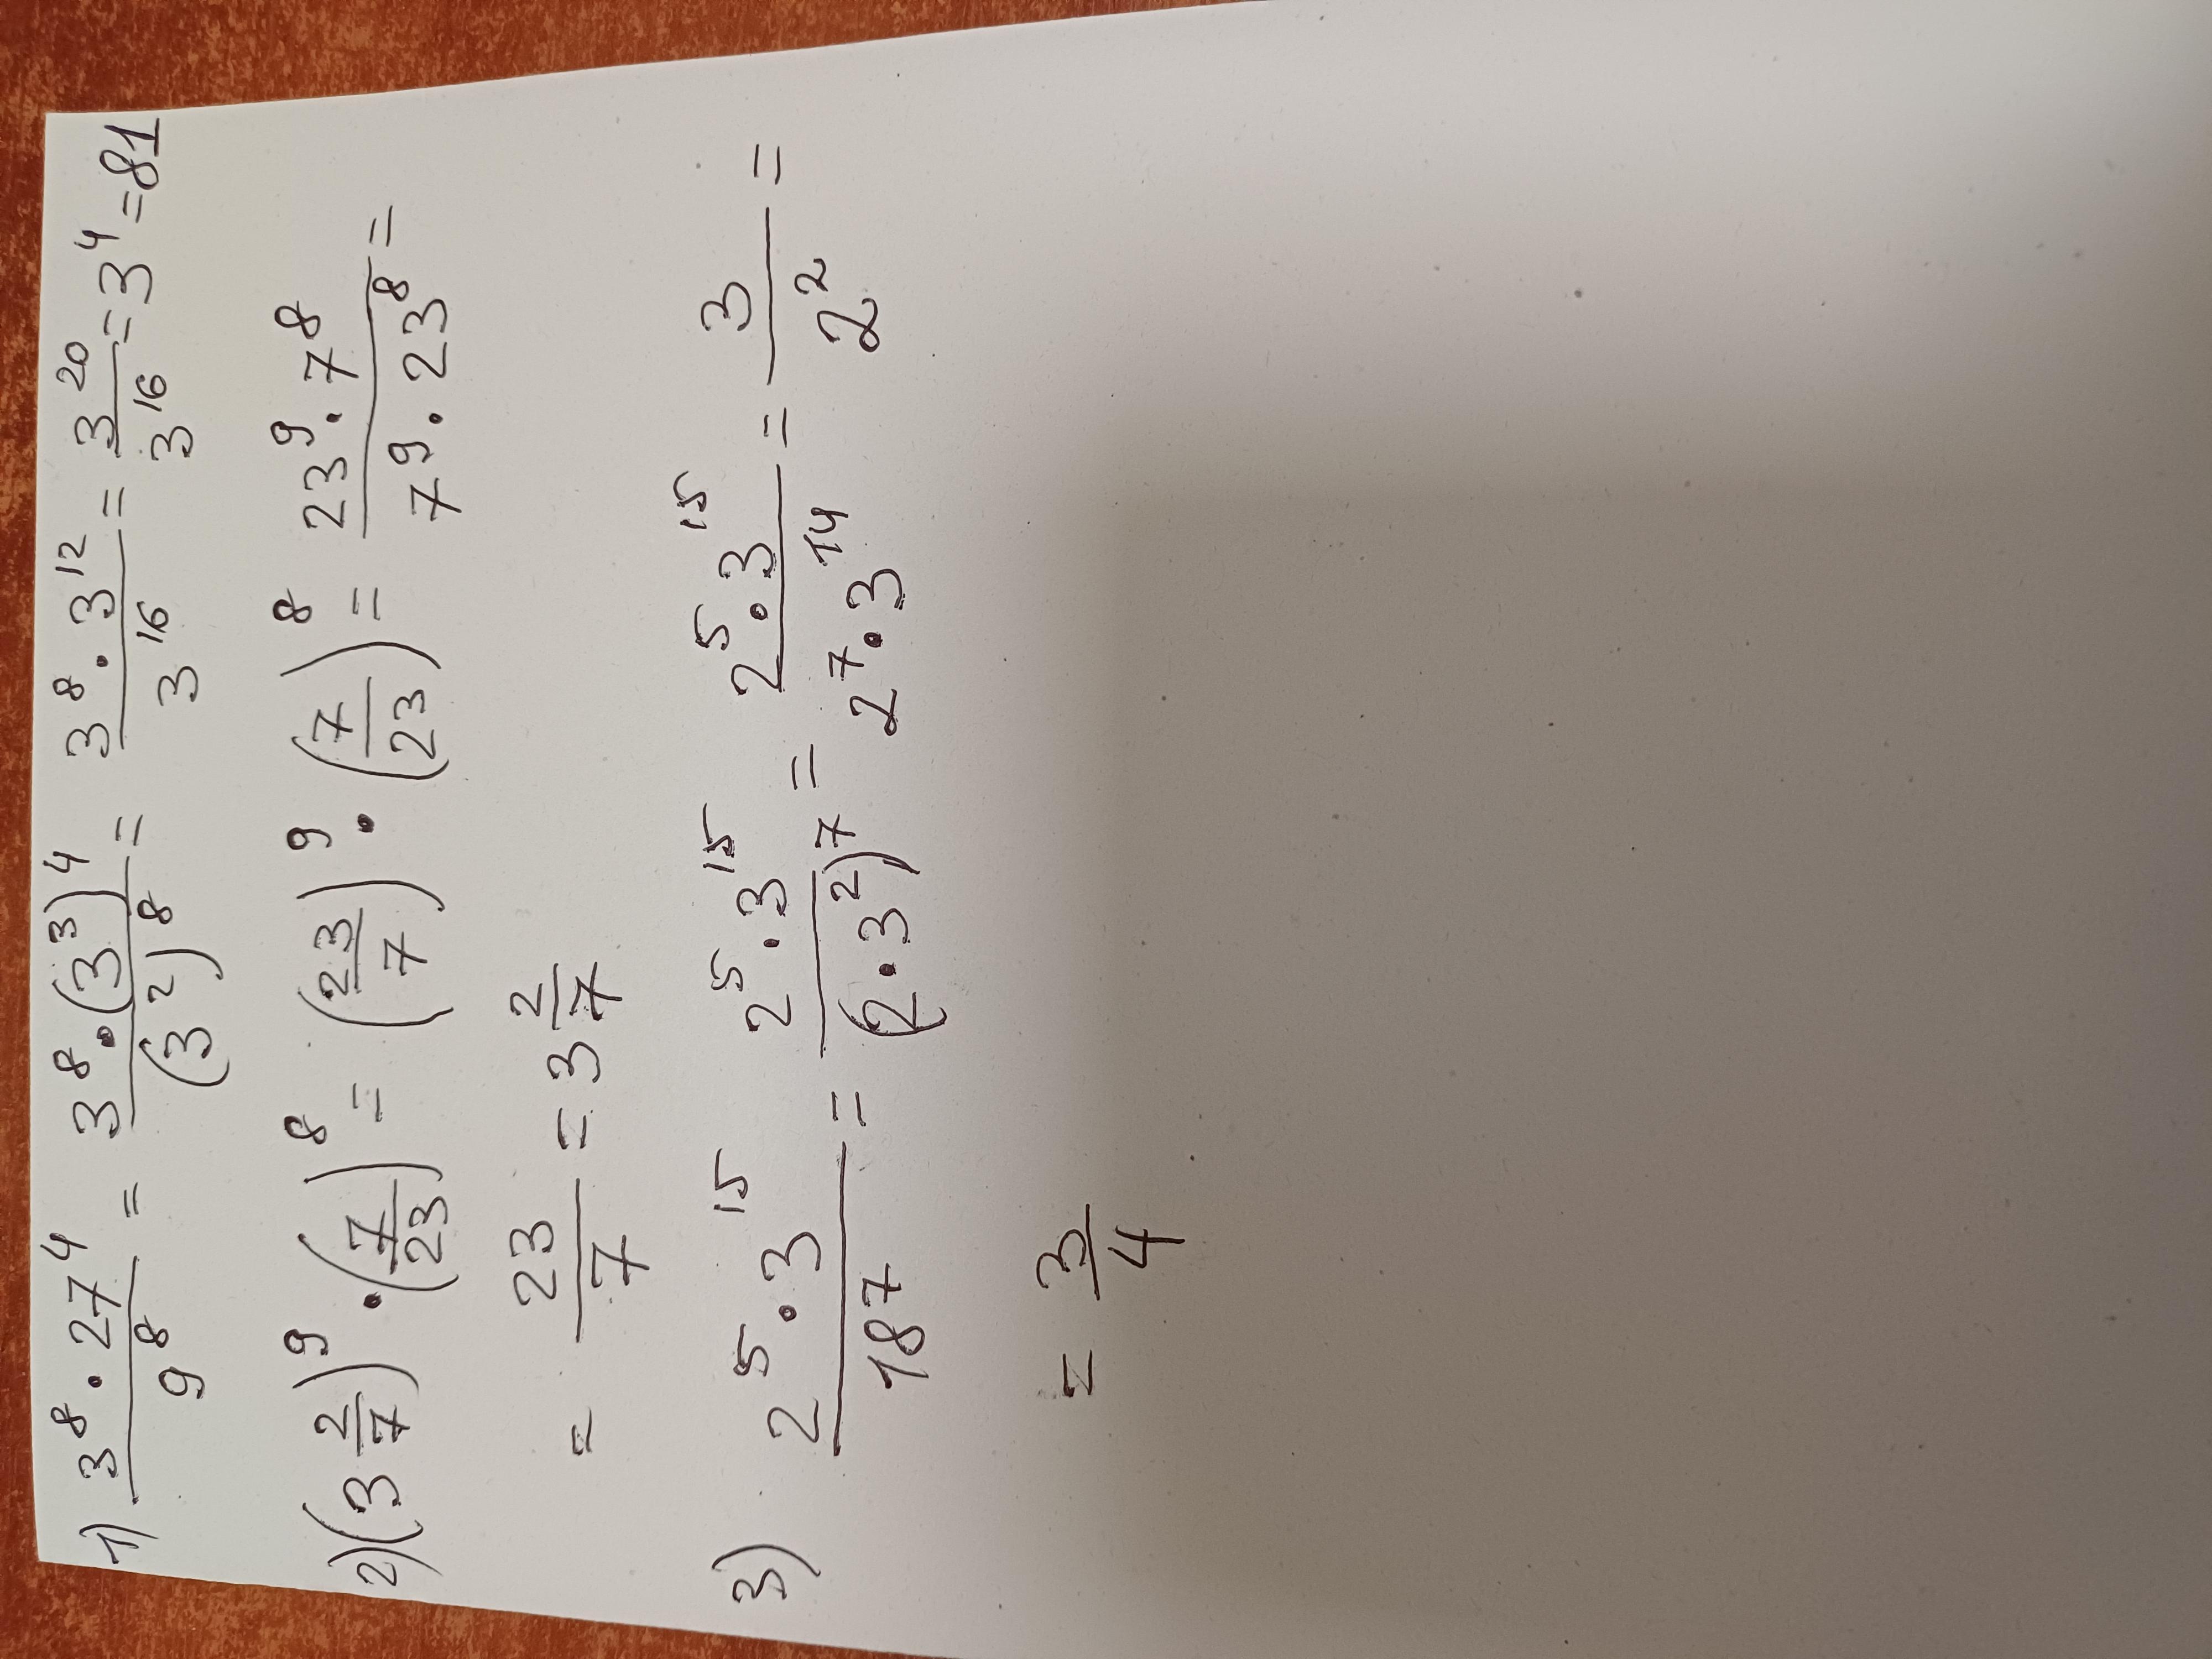 1) 3⁸·27⁴/9⁸ = 3⁸·(3³)⁴/(3²)⁸ = 3⁸·3¹²/3¹⁶ = 3²⁰/3¹⁶ = 3⁴ = 81
2) (3 2/7)⁹·(7/23)⁸ = (23/7)⁹·(7/23)⁸ = 23⁹·7⁸/7⁹·23⁸ =
= 23/7 = 3 2/7
3) 2⁵·3¹⁵/18⁷ = 2⁵·3¹⁵/(2·3²)⁷ = 2⁵·3¹⁵/2⁷·3¹⁴ = 3/2² =
= 3/4